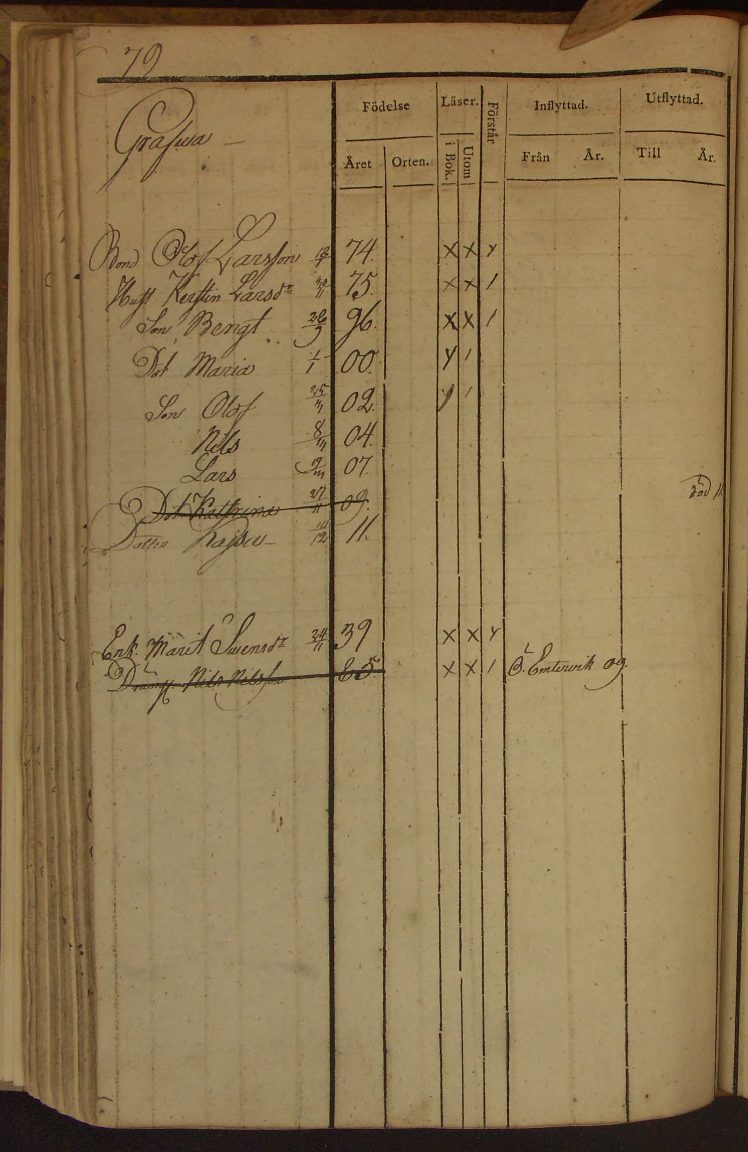 79
Födelse Läser. Förstår Inflyttad. Utflyttad.
Året Orten. i Bok. Utom Från År. Till År.
Bond Olof Larsson 74. X X Y
Hust Kerstin Larsdr 75. X X 1
Son Bengt 26/9 96. X X 1
Dot Maria 1/1 00. Y 1
Son Olof 02.
Nils 04.
Lars 07.
Dot Kathrina 27/11 09. död 11
Dotter Kajsa 12 11.
Enk. Marit Swensdr 24/11 39 X X Y
Dräng Nils Nilsson 65. X X 1 Ö. Emterwik 09.